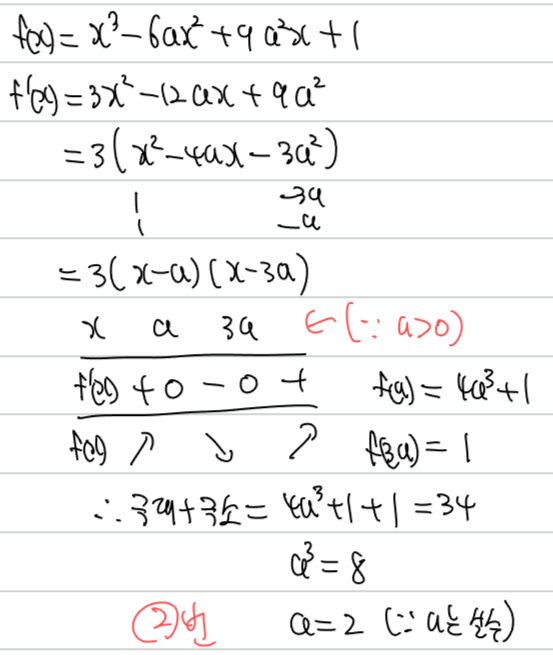 f(x) = x³ - 6ax² + 9a²x + 1
f'(x) = 3x² - 12ax + 9a²
= 3(x² - 4ax - 3a²)
1 -3a
1 -a
= 3(x-a)(x-3a)
x a 3a ← (∵ a>0)
f'(x) + 0 - 0 + f(a) = 4a³+1
f(x) ↗ ↘ ↗ f(3a) = 1
∴ 극대+극소 = 4a³+1+1 = 34
a³ = 8
②번 a=2 (∵ a는 실수)